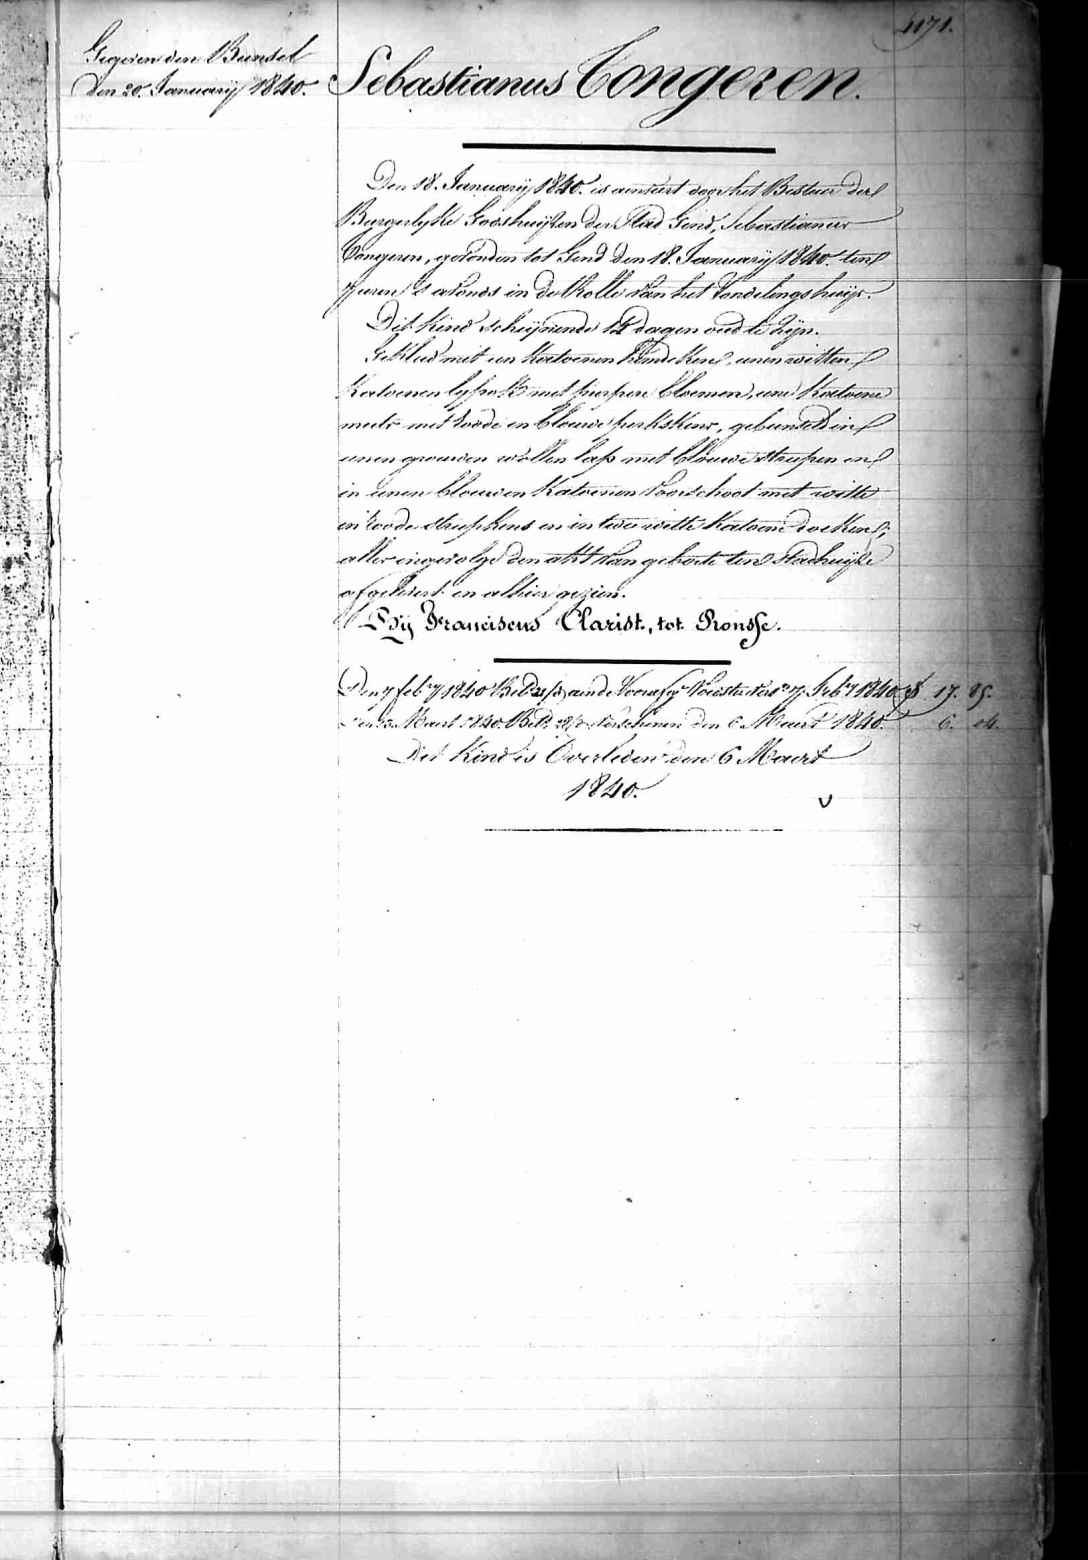 1171.
Gegeven den Bunsel
den 20 Januarij 1840.
Sebastianus Tongeren.
Den 18. Januarij 1840. is aenvärt door het Bestuer der
Burgerlyke Godshuijzen der Stad Gend, Sebastianus
Tongeren, gevonden tot Gend den 18. Januarij 1840. ten
7 uren 's avonds in de Rolle van het Vondelingshuijs.
Dit kind scheijnende 14 dagen oud te zijn.
Gekleed met een Katoenen hemdeken, eenen witten
Katoenen lyfrok met purpere bloemen, eene Katoene
muts met roode en blouwe perkskens, gebunseld in
eenen grouwen wollen lap met blouwe streepen en
in eenen blouwen Katoenen voorschoot met witte
en roode streepkens en in twee witte Katoene doeken;
alles ingevolge den akt van geboorte ten Stadhuijse
afgelevert en alhier gezien.
Bij Franciscus Clarist, tot Ronsse.
Den 7 feb.ry 1840 Bet. aende Voorsz. 7 Feb.ry 1840 17. 85.
Maert 1840. Bet. verschenen den 6 Maert 1840. 6. 04.
Dit Kind is Overleden den 6 Maert
1840.